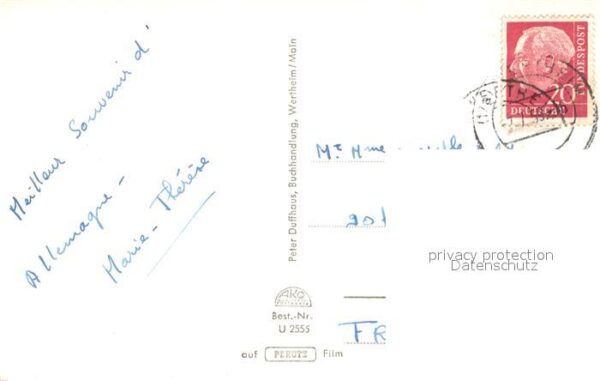 Meilleur Souvenir d'
Allemagne -
Marie-Thérèse
Peter Duffhaus, Buchhandlung, Wertheim/Main
Best.-Nr.
U 2555
auf PERUTZ Film
20
BUNDESPOST
DEUTSCHE
Mr Mme
privacy protection
Datenschutz
FR